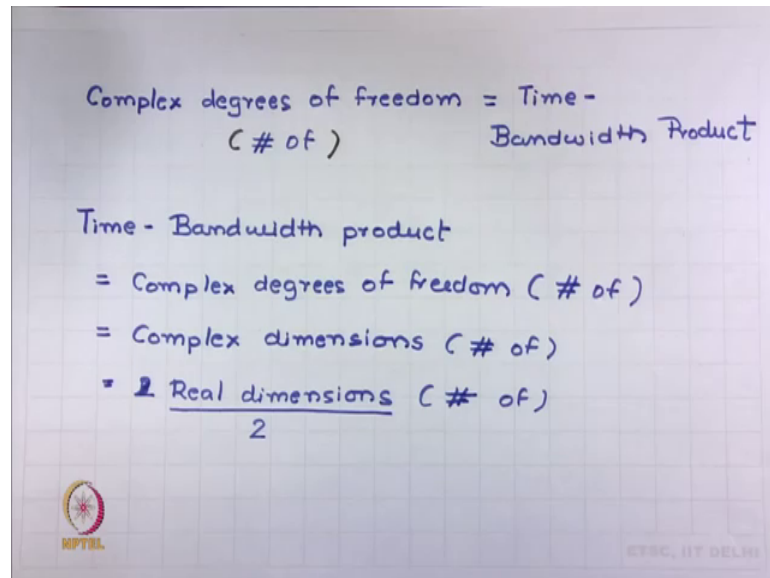 Complex degrees of freedom = Time-
(# of) Bandwidth Product
Time - Bandwidth product
= Complex degrees of freedom (# of)
= Complex dimensions (# of)
= Real dimensions (# of)
2
NPTEL
ETSC, IIT DELHI